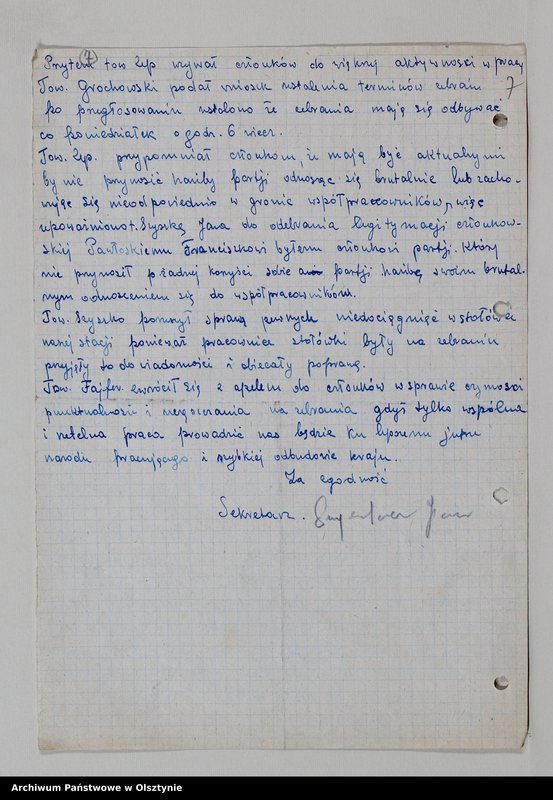 7
Przytem tow Zyp wzywał członków do większej aktywności w pracy
Tow. Grochowski podał wniosek ustalenia terminów zebrań 7
po przegłosowaniu ustalono że zebrania mają się odbywać
co poniedziałek o godz. 6 wiecz.
Tow. Zyp. przypomniał członkom, że mają być aktualnymi
by nie przynosić hańby partji odnosząc się brutalnie lub zacho-
wując się nieodpowiednio w gronie współpracowników, więc
upoważniono t. Szyszkę Jana do odebrania legitymacji członkow-
skiej Pawłoskiemu Franciszkowi byłemu członkowi partji. Który
nie przynosił żadnej korzyści sobie a partji hańbę swoim brutal-
nym odnoszeniem się do współpracowników.
Tow. Szyszko poruszył sprawę pewnych niedociągnięć w stołówce
naszej stacji ponieważ pracownice stołówki były na zebraniu
przyjęły to do wiadomości i obiecały poprawę.
Tow. Fajfer zwrócił się z apelem do członków w sprawie czynności
punktualności i uczęszczania na zebrania gdyż tylko wspólna
i rzetelna praca prowadzić nas będzie ku lepszemu jutru
narodu pracującego i szybkiej odbudowie kraju.
Za zgodność
Sekretarz.
Archiwum Państwowe w Olsztynie